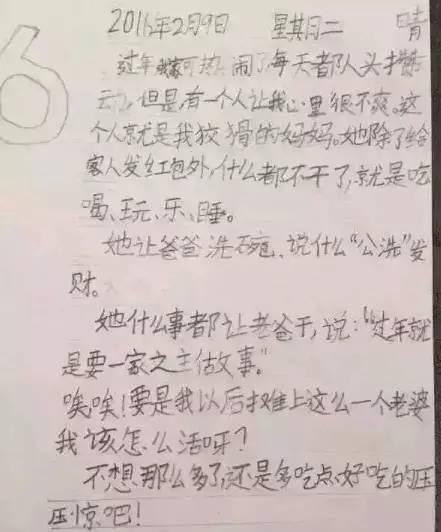 6
2016年2月9日 星期二 晴
过年我家可热闹了,每天都队头攒
动,但是,有一个人让我心里很不爽。这
个人就是我狡猾的妈妈。她除了给
客人发红包外,什么都不干了,就是吃
喝、玩、乐、睡。
她让爸爸洗碗、说什么“公洗”发
财。
她什么事都让老爸干,说:“过年就
是要一家之主估故事。”
唉唉!要是我以后摊上这么一个老婆
我该怎么活呀?
不想那么多了,还是多吃点好吃的压
压惊吧!